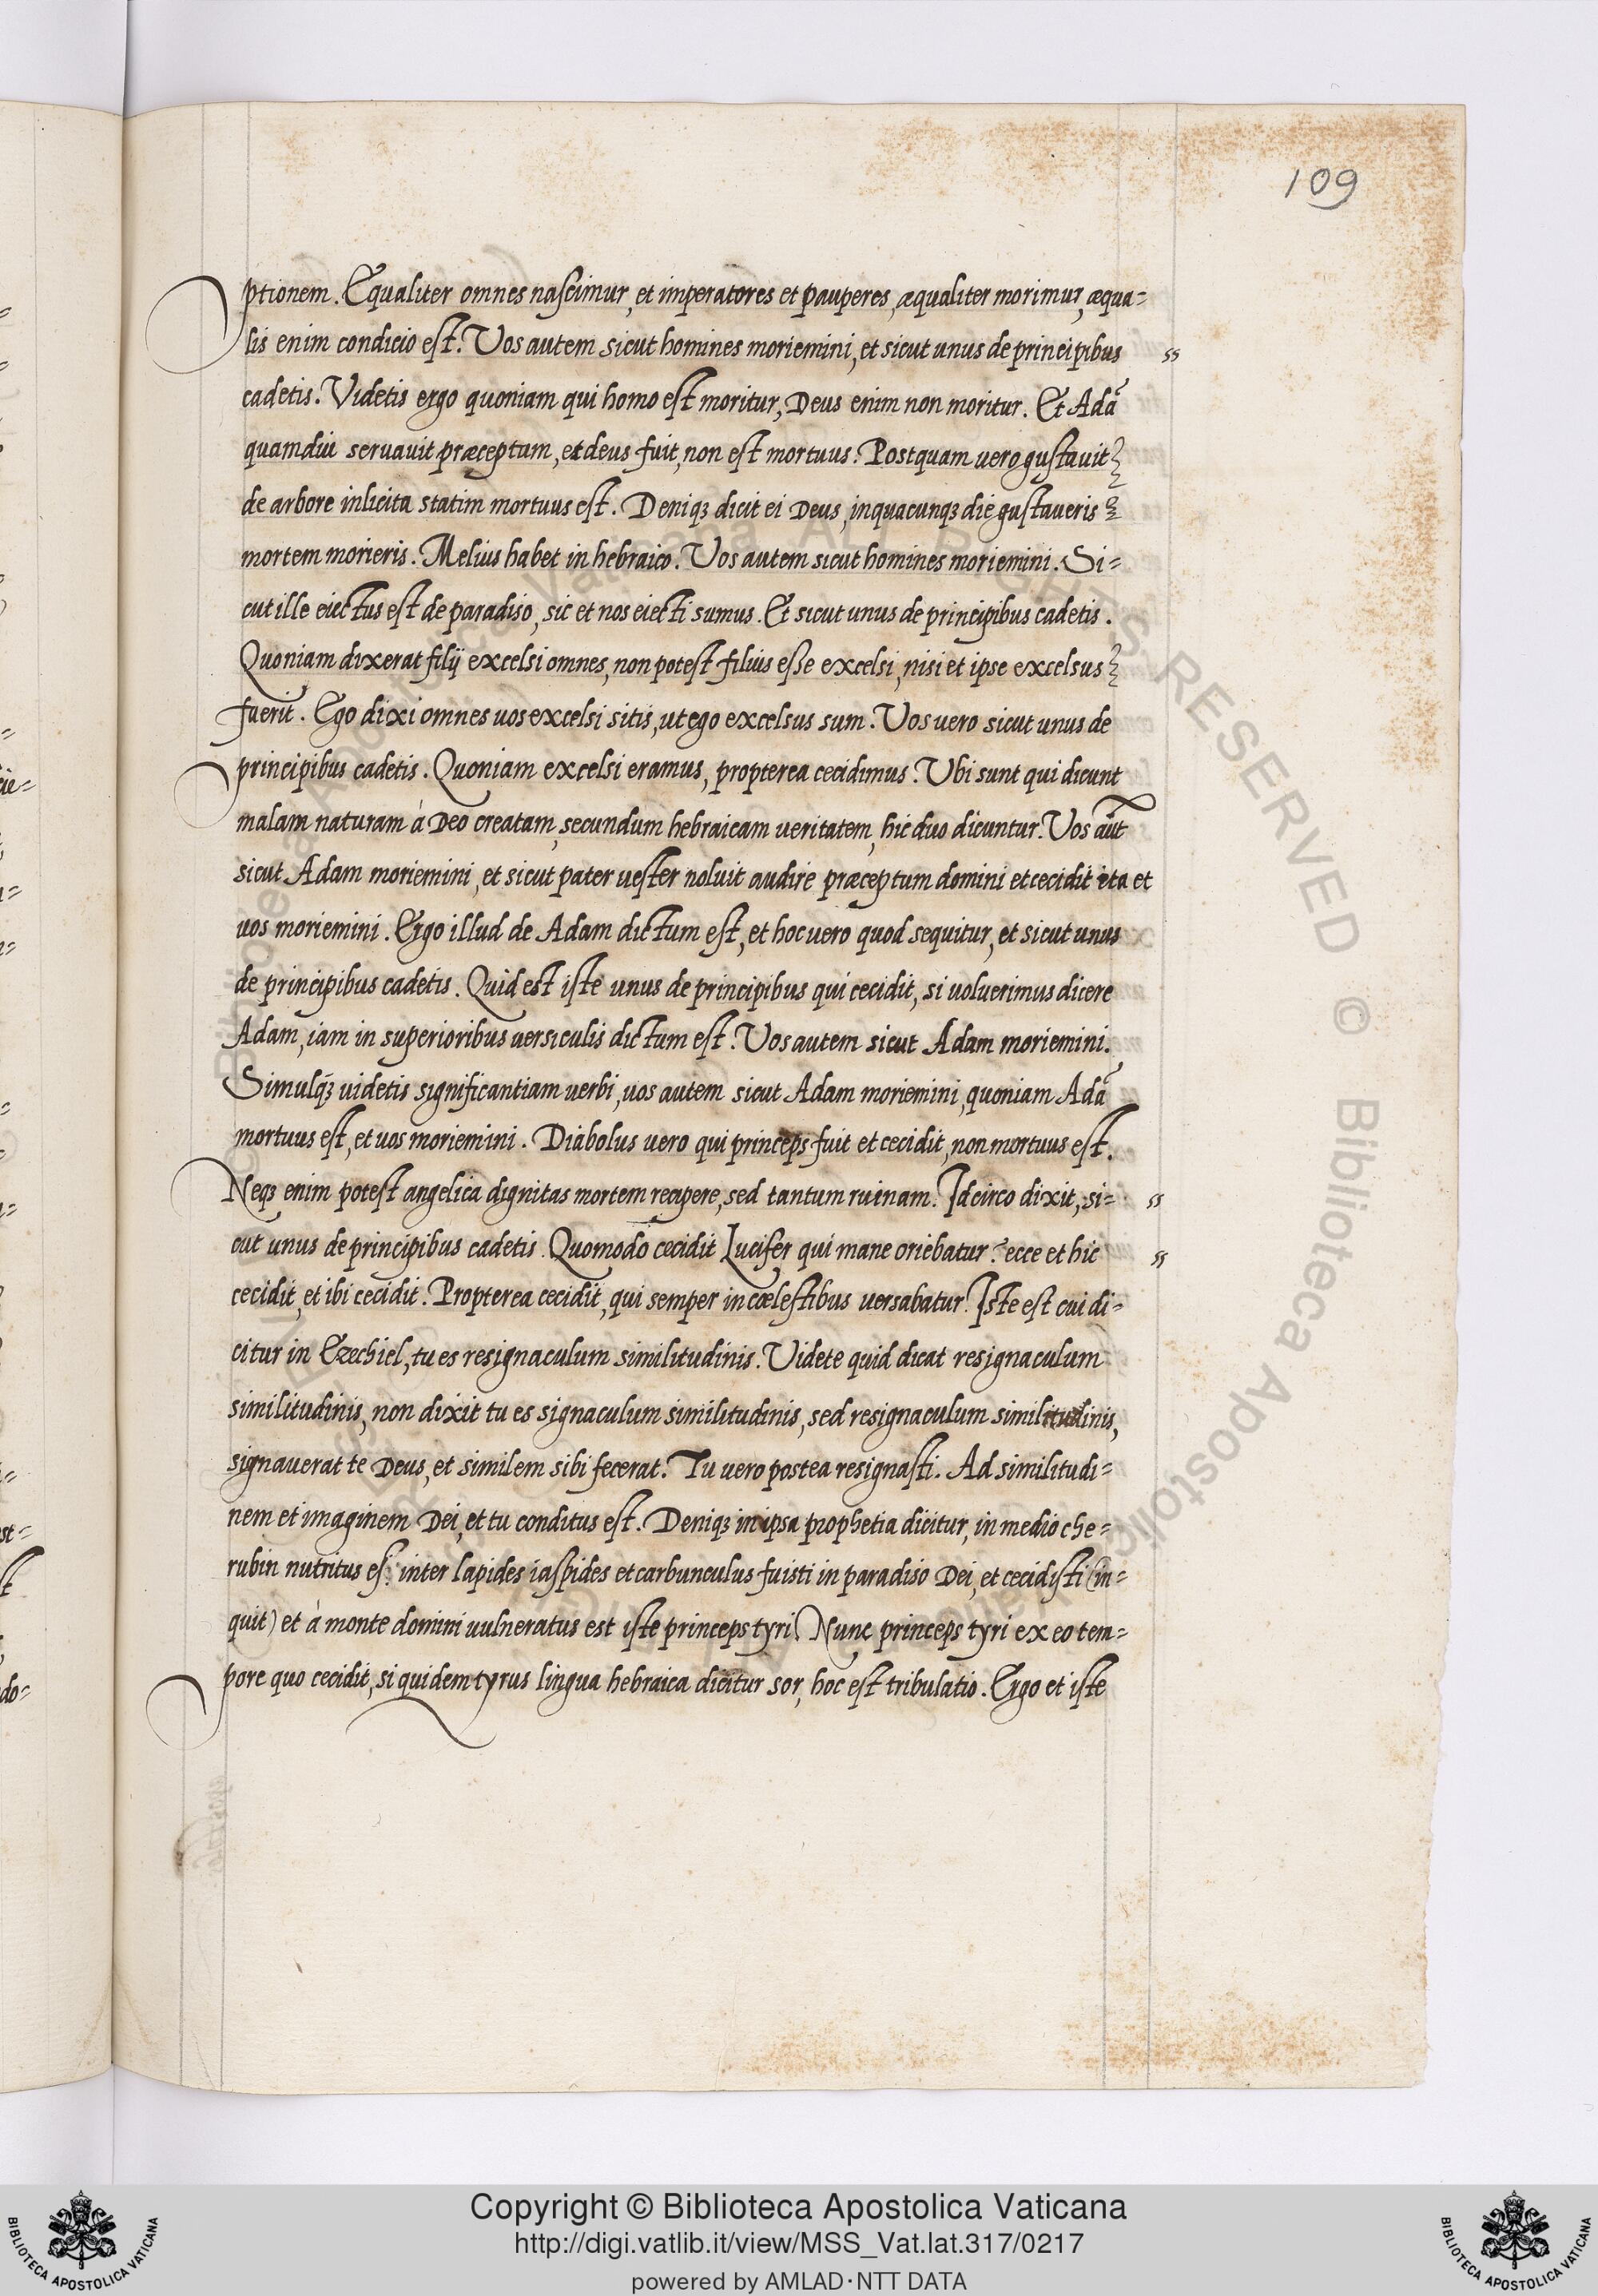 109
ptionem. Equaliter omnes nascimur, et imperatores et pauperes, æqualiter morimur, æqua=
lis enim condicio est. Vos autem sicut homines moriemini, et sicut unus de principibus
cadetis. Videtis ergo quoniam qui homo est moritur, Deus enim non moritur. Et Adã
quamdiu servavit præceptum, et deus fuit, non est mortuus. Postquam vero gustavit
de arbore inlicita statim mortuus est. Deniqꝫ dicit ei Deus, in quacunqꝫ die gustaveris
mortem morieris. Melius habet in hebraico. Vos autem sicut homines moriemini. Si=
cut ille eiectus est de paradiso, sic et nos eiecti sumus. Et sicut unus de principibus cadetis.
Quoniam dixerat filij excelsi omnes, non potest filius esse excelsi, nisi et ipse excelsus
fuerit. Ego dixi omnes vos excelsi sitis, ut ego excelsus sum. Vos vero sicut unus de
principibus cadetis. Quoniam excelsi eramus, propterea cecidimus. Vbi sunt qui dicunt
malam naturam à Deo creatam, secundum hebraicam veritatem, hic duo dicuntur. Vos aũt
sicut Adam moriemini, et sicut pater vester noluit audire præceptum domini et cecidit ita et
vos moriemini. Ergo illud de Adam dictum est, et hoc vero quod sequitur, et sicut unus
de principibus cadetis. Quid est iste unus de principibus qui cecidit, si voluerimus dicere
Adam, iam in superioribus versiculis dictum est. Vos autem sicut Adam moriemini.
Simulqꝫ videtis significantiam verbi, vos autem sicut Adam moriemini, quoniam Adã
mortuus est, et vos moriemini. Diabolus vero qui princeps fuit et cecidit, non mortuus est.
Neqꝫ enim potest angelica dignitas mortem recipere, sed tantum ruinam. Idcirco dixit, si=
cut unus de principibus cadetis. Quomodo cecidit Lucifer qui mane oriebatur? ecce et hic
cecidit, et ibi cecidit. Propterea cecidit, qui semper in cœlestibus versabatur. Iste est cui di=
citur in Ezechiel, tu es resignaculum similitudinis. Videte quid dicat resignaculum
similitudinis, non dixit tu es signaculum similitudinis, sed resignaculum similitudinis,
signaverat te Deus, et similem sibi fecerat. Tu vero postea resignasti. Ad similitudi=
nem et imaginem Dei, et tu conditus est. Deniqꝫ in ipsa prophetia dicitur, in medio che=
rubin nutritus es: inter lapides iaspides et carbunculus fuisti in paradiso Dei, et cecidisti (in=
quit) et à monte domini vulneratus est iste princeps tyri. Nunc princeps tyri ex eo tem=
pore quo cecidit, siquidem tyrus lingua hebraica dicitur sor, hoc est tribulatio. Ergo et iste
Copyright © Biblioteca Apostolica Vaticana
http://digi.vatlib.it/view/MSS_Vat.lat.317/0217
powered by AMLAD·NTT DATA
BIBLIOTECA APOSTOLICA VATICANA
BIBLIOTECA APOSTOLICA VATICANA